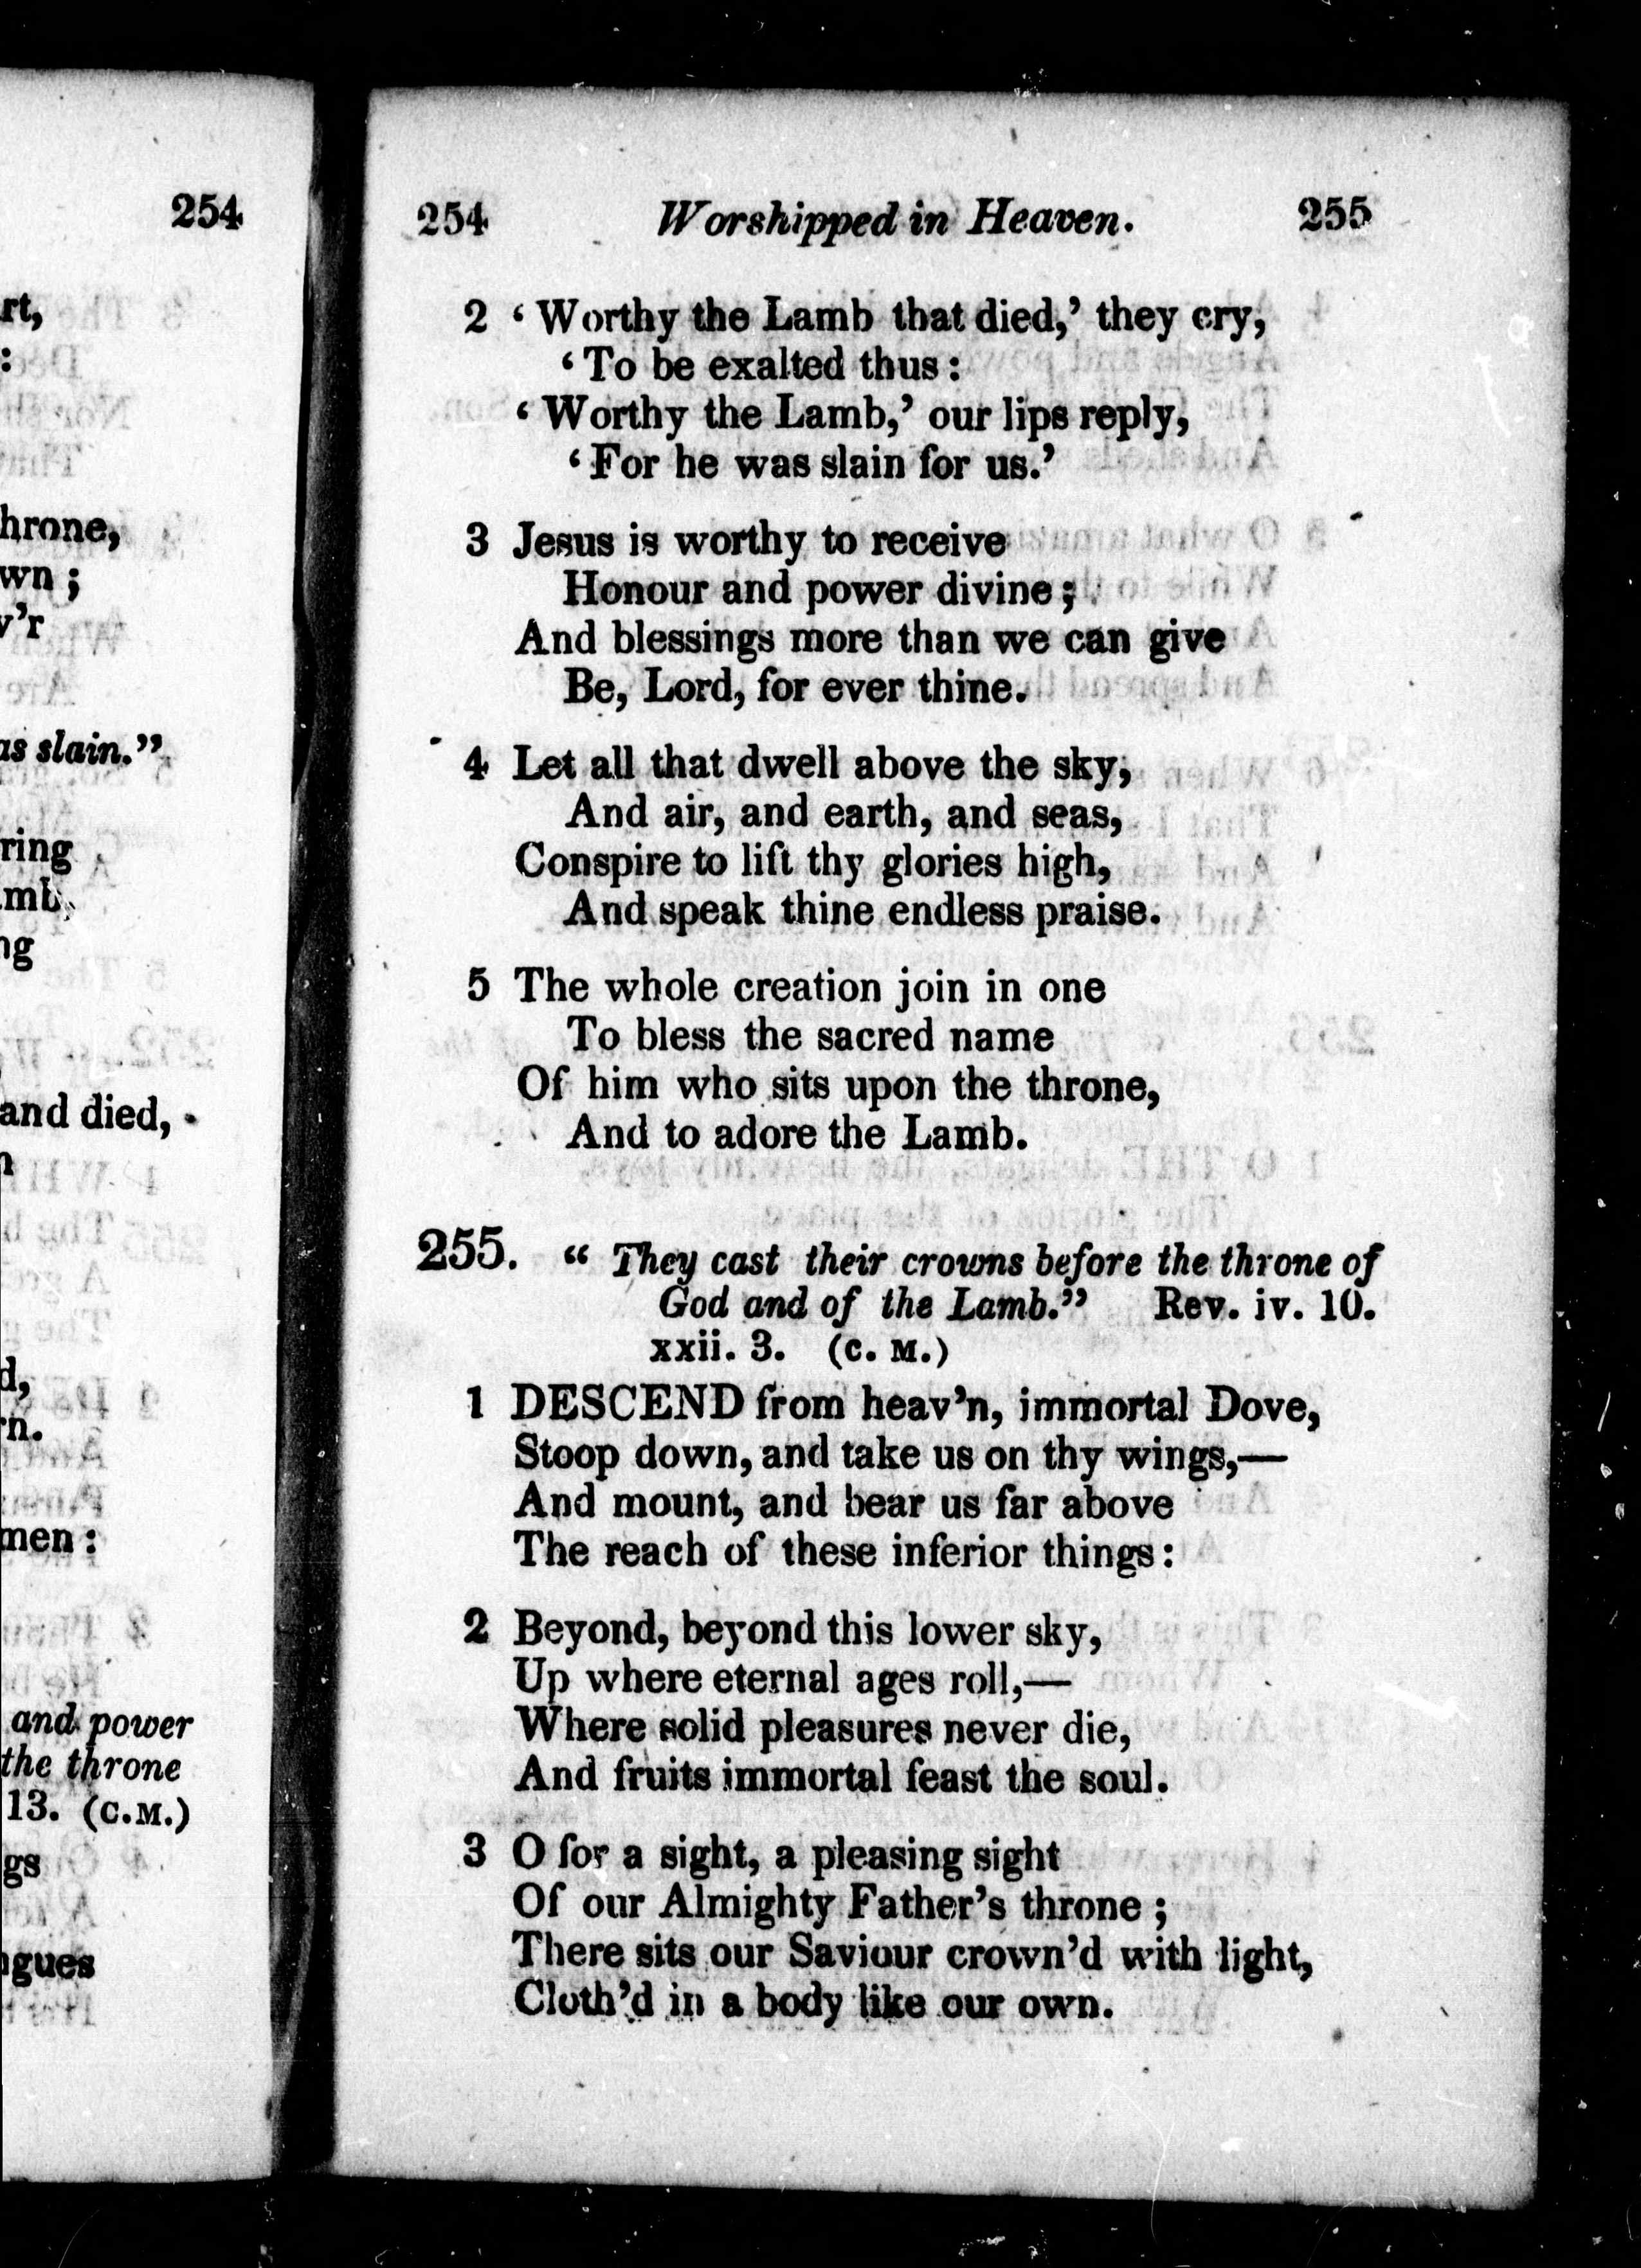 254
rt,
:
hrone,
wn ;
v'r
as slain.”
ring
mb,
ng
and died,
d,
rn.
men :
and power
the throne
13. (C.M.)
gs
gues
254 Worshipped in Heaven. 255
2 ‘ Worthy the Lamb that died,’ they cry,
‘ To be exalted thus :
‘ Worthy the Lamb,’ our lips reply,
‘ For he was slain for us.’
3 Jesus is worthy to receive
Honour and power divine ;
And blessings more than we can give
Be, Lord, for ever thine.
4 Let all that dwell above the sky,
And air, and earth, and seas,
Conspire to lift thy glories high,
And speak thine endless praise.
5 The whole creation join in one
To bless the sacred name
Of him who sits upon the throne,
And to adore the Lamb.
255. “ They cast their crowns before the throne of
God and of the Lamb.” Rev. iv. 10.
xxii. 3. (C. M.)
1 DESCEND from heav’n, immortal Dove,
Stoop down, and take us on thy wings,—
And mount, and bear us far above
The reach of these inferior things :
2 Beyond, beyond this lower sky,
Up where eternal ages roll,—
Where solid pleasures never die,
And fruits immortal feast the soul.
3 O for a sight, a pleasing sight
Of our Almighty Father’s throne ;
There sits our Saviour crown’d with light,
Cloth’d in a body like our own.